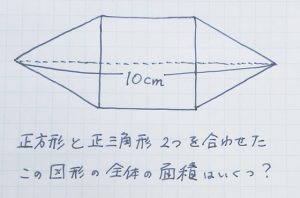 10cm
正方形と正三角形2つを合わせた
この図形の全体の面積はいくつ？